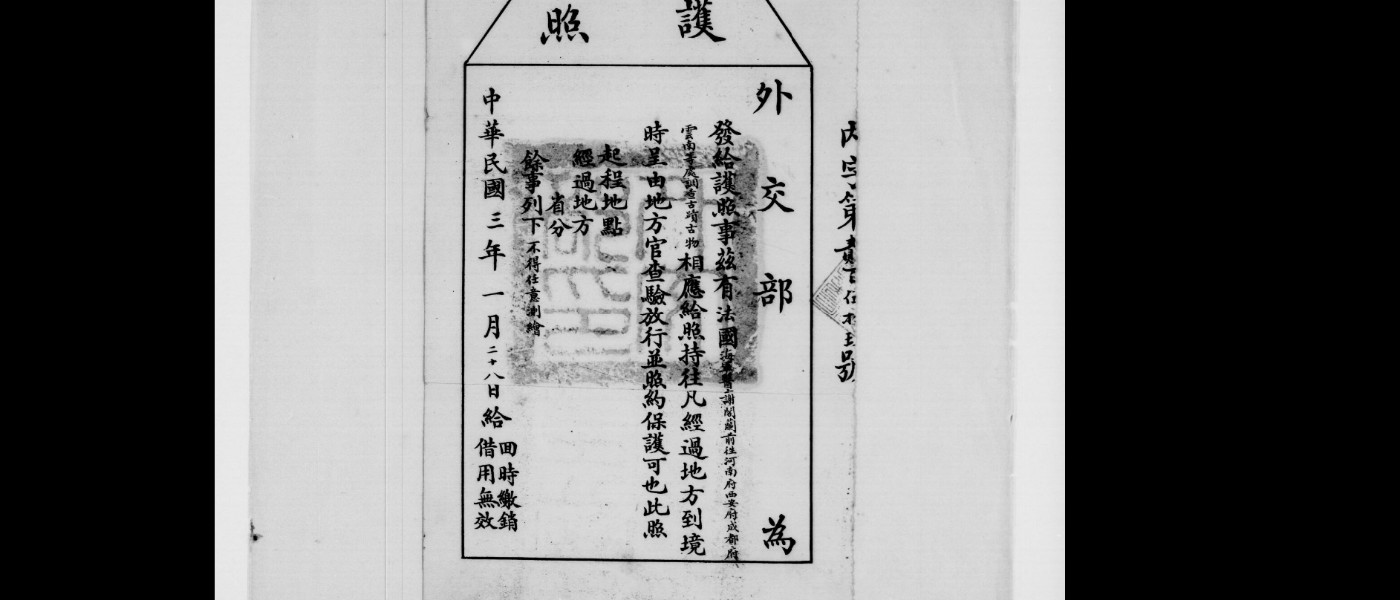 護照
第貳百伍拾
號
外交部為
發給護照事茲有法國海軍醫士謝閣蘭前往河南府西安府成都府
雲南等處調查古蹟古物相應給照持往凡經過地方到境
時呈由地方官查驗放行並照約保護可也此照
起程地點
經過地方
省分
餘事列下不得任意測繪
中華民國三年一月二十八日給
回時繳銷
借用無效